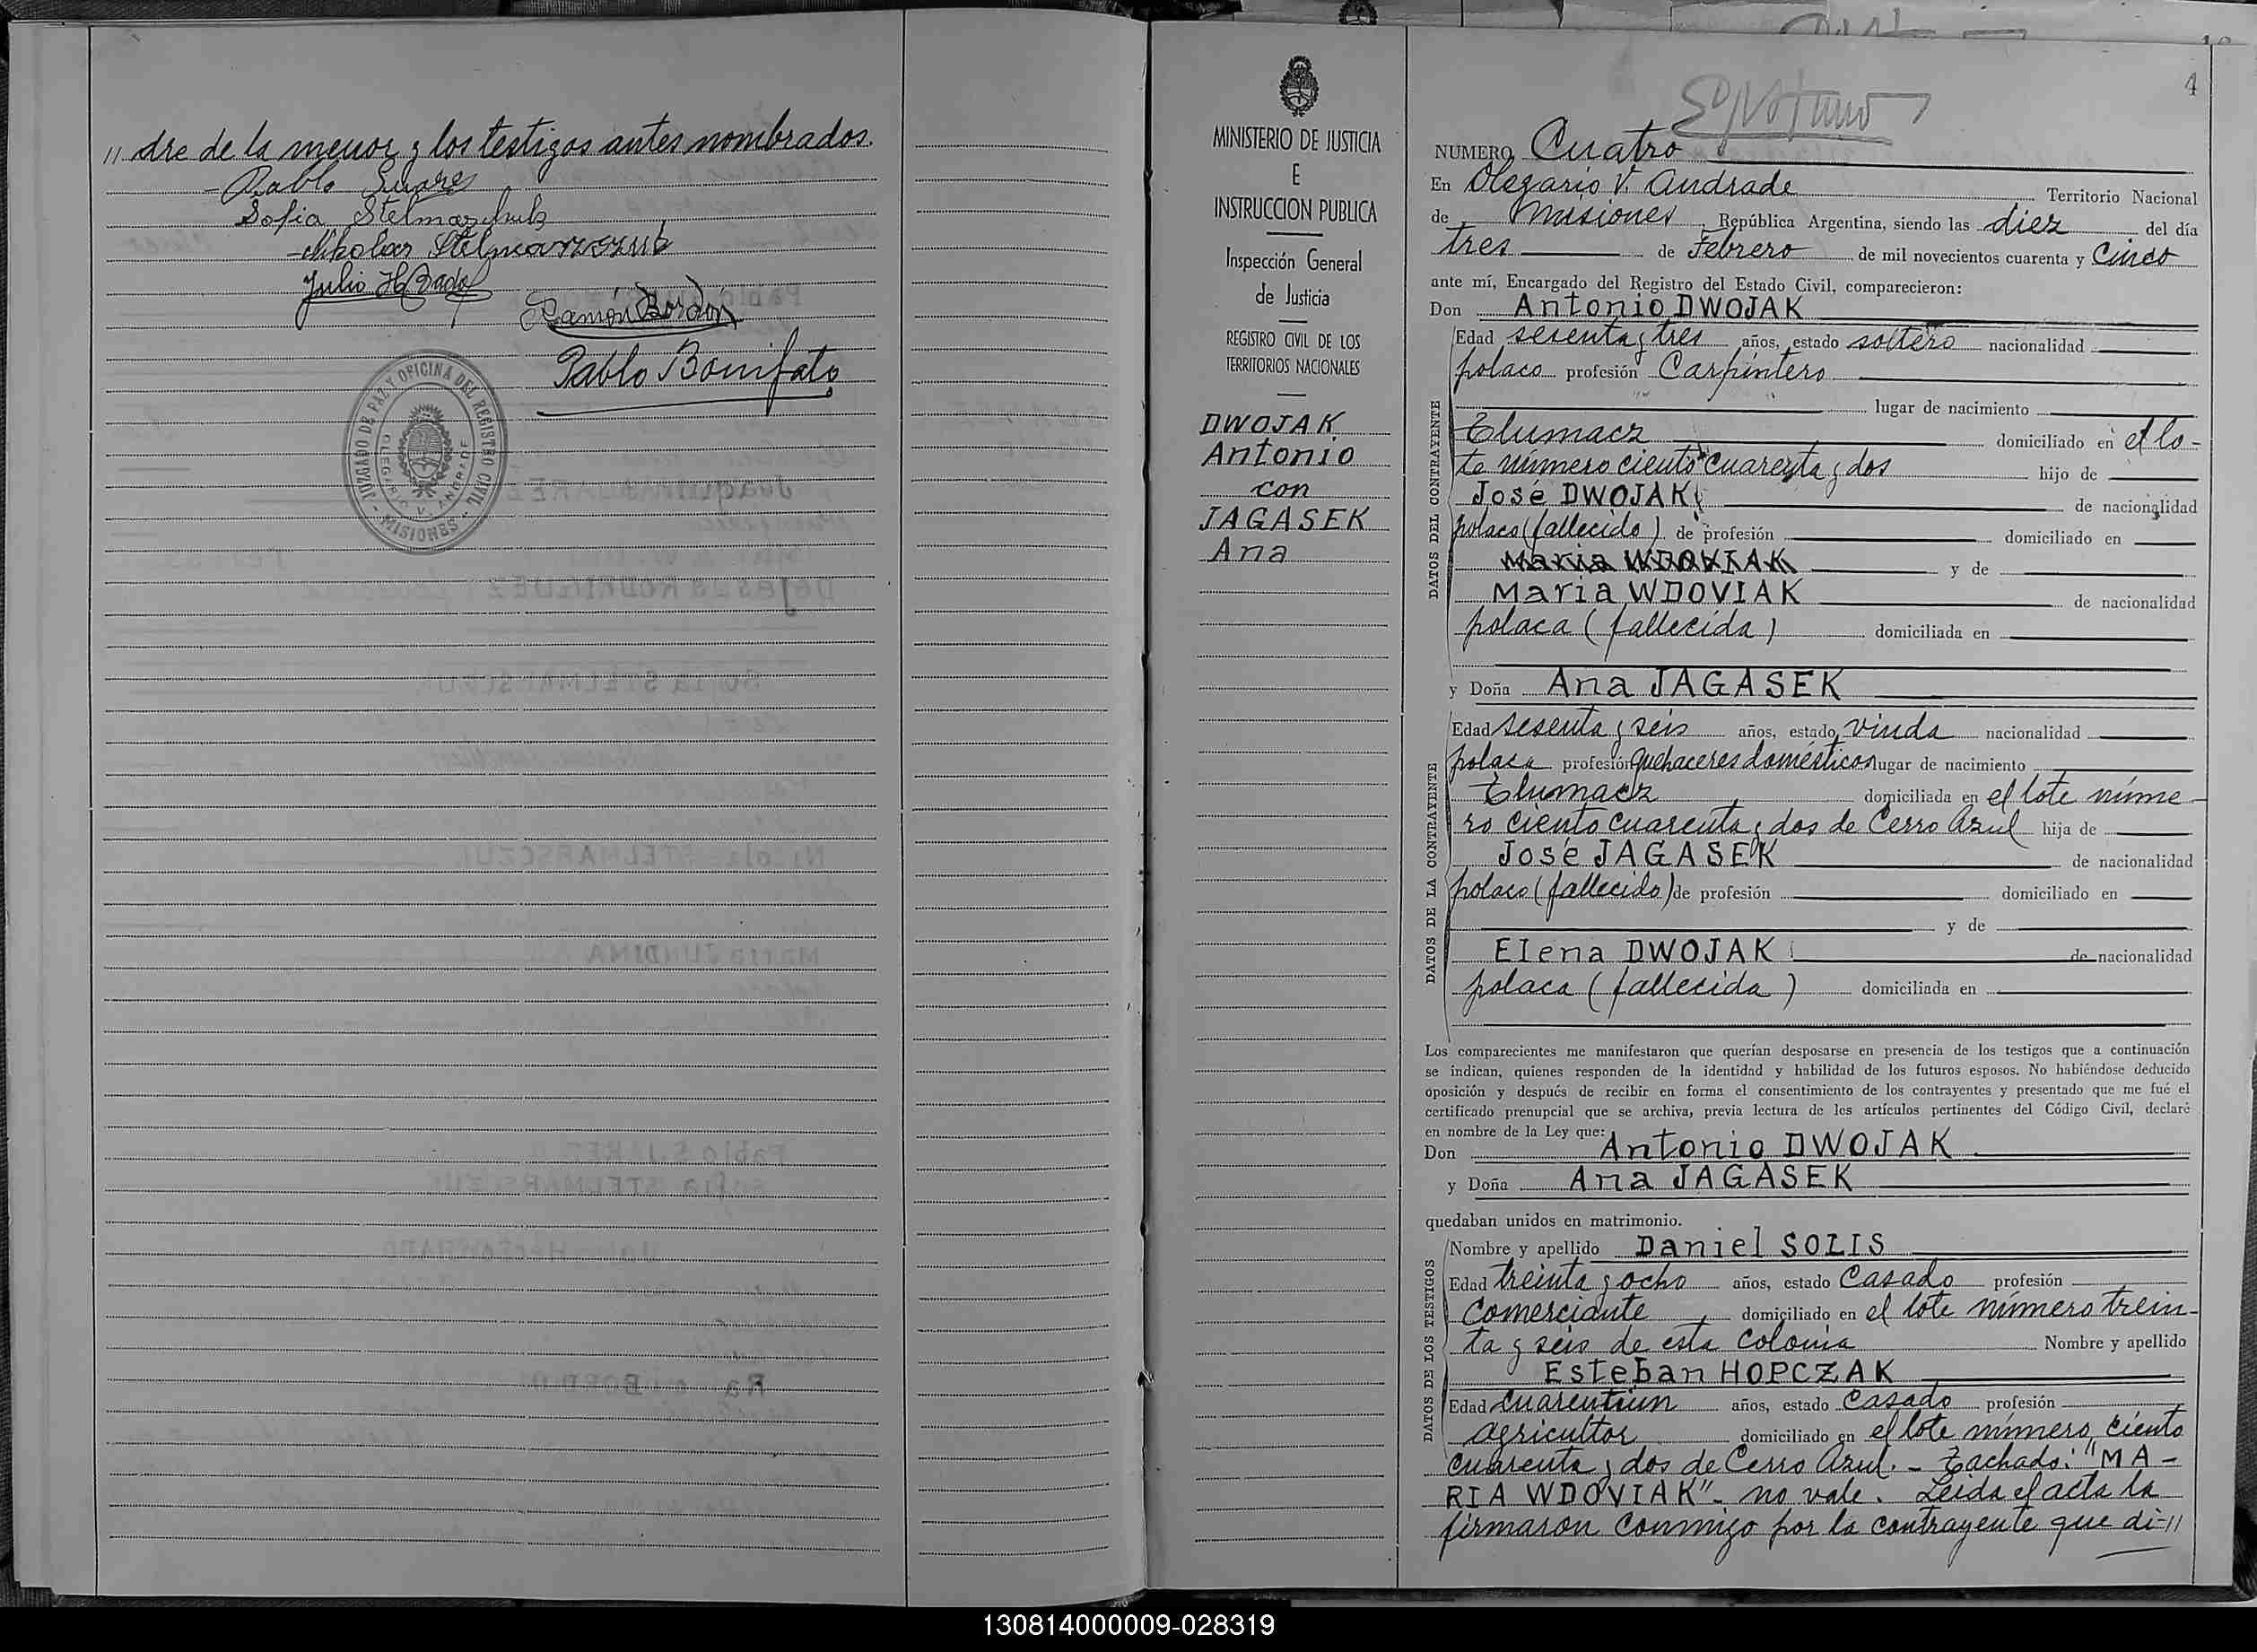 " dre de la menor y los testigos antes nombrados.
- Pablo Suares
Sofia
Nikolas
Julio H.
Ramón Bordón
Pablo Bonifato
JUZGADO DE PAZ Y OFICINA DEL REGISTRO CIVIL
OLEGARIO V. ANDRADE
- MISIONES -
MINISTERIO DE JUSTICIA
E
INSTRUCCION PUBLICA
Inspección General
de Justicia
REGISTRO CIVIL DE LOS
TERRITORIOS NACIONALES
DWOJAK
Antonio
con
JAGASEK
Ana
4
NUMERO Cuatro
En Olegario V. Andrade Territorio Nacional
de Misiones República Argentina, siendo las diez del día
tres de Febrero de mil novecientos cuarenta y Cinco
ante mí, Encargado del Registro del Estado Civil, comparecieron:
Don Antonio DWOJAK
DATOS DEL CONTRAYENTE
Edad sesenta y tres años, estado soltero nacionalidad
polaco profesión Carpintero
lugar de nacimiento
Tlumacz domiciliado en el lo-
te número ciento cuarenta y dos hijo de
José DWOJAK de nacionalidad
polaco (fallecido) de profesión domiciliado en
Maria WDOVIAK y de
Maria WDOVIAK de nacionalidad
polaca (fallecida) domiciliada en
y Doña Ana JAGASEK
DATOS DE LA CONTRAYENTE
Edad sesenta y seis años, estado viuda nacionalidad
polaca profesión quehaceres domésticos lugar de nacimiento
Tlumacz domiciliada en el lote núme-
ro ciento cuarenta y dos de Cerro Azul hija de
José JAGASEK de nacionalidad
polaco (fallecido) de profesión domiciliado en
y de
Elena DWOJAK de nacionalidad
polaca (fallecida) domiciliada en
Los comparecientes me manifestaron que querían desposarse en presencia de los testigos que a continuación
se indican, quienes responden de la identidad y habilidad de los futuros esposos. No habiéndose deducido
oposición y después de recibir en forma el consentimiento de los contrayentes y presentado que me fué el
certificado prenupcial que se archiva, previa lectura de los artículos pertinentes del Código Civil, declaré
en nombre de la Ley que:
Don Antonio DWOJAK
y Doña Ana JAGASEK
quedaban unidos en matrimonio.
DATOS DE LOS TESTIGOS
Nombre y apellido Daniel SOLIS
Edad treinta y ocho años, estado Casado profesión
Comerciante domiciliado en el lote número trein-
ta y seis de esta Colonia Nombre y apellido
Esteban HOPCZAK
Edad cuarentiun años, estado Casado profesión
agricultor domiciliado en el lote número ciento
cuarenta y dos de Cerro Azul. - Tachado: "MA-
RIA WDOVIAK" - no vale. Leida el acta la
firmaron conmigo por la contrayente que di-"
130814000009-028319